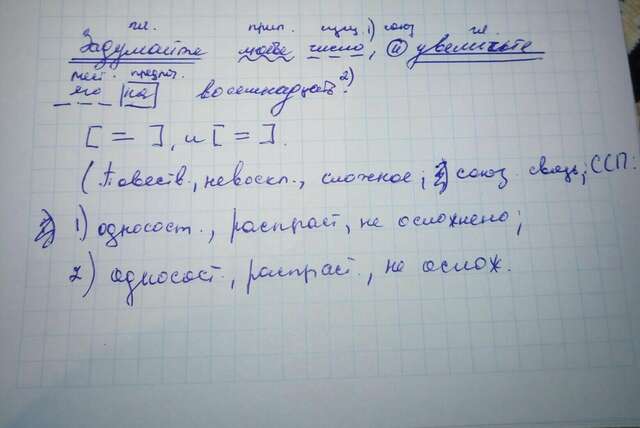 гл. прил. сущ. 1) союз гл.
Задумайте любое число, и увеличьте
мест. предлог. 2)
его на восемнадцать.
[ = ], и [ = ].
(Повеств., невоскл., сложное; союз. связь; ССП:
1) односост., распраст, не осложнено;
2) односост., распраст., не ослож.